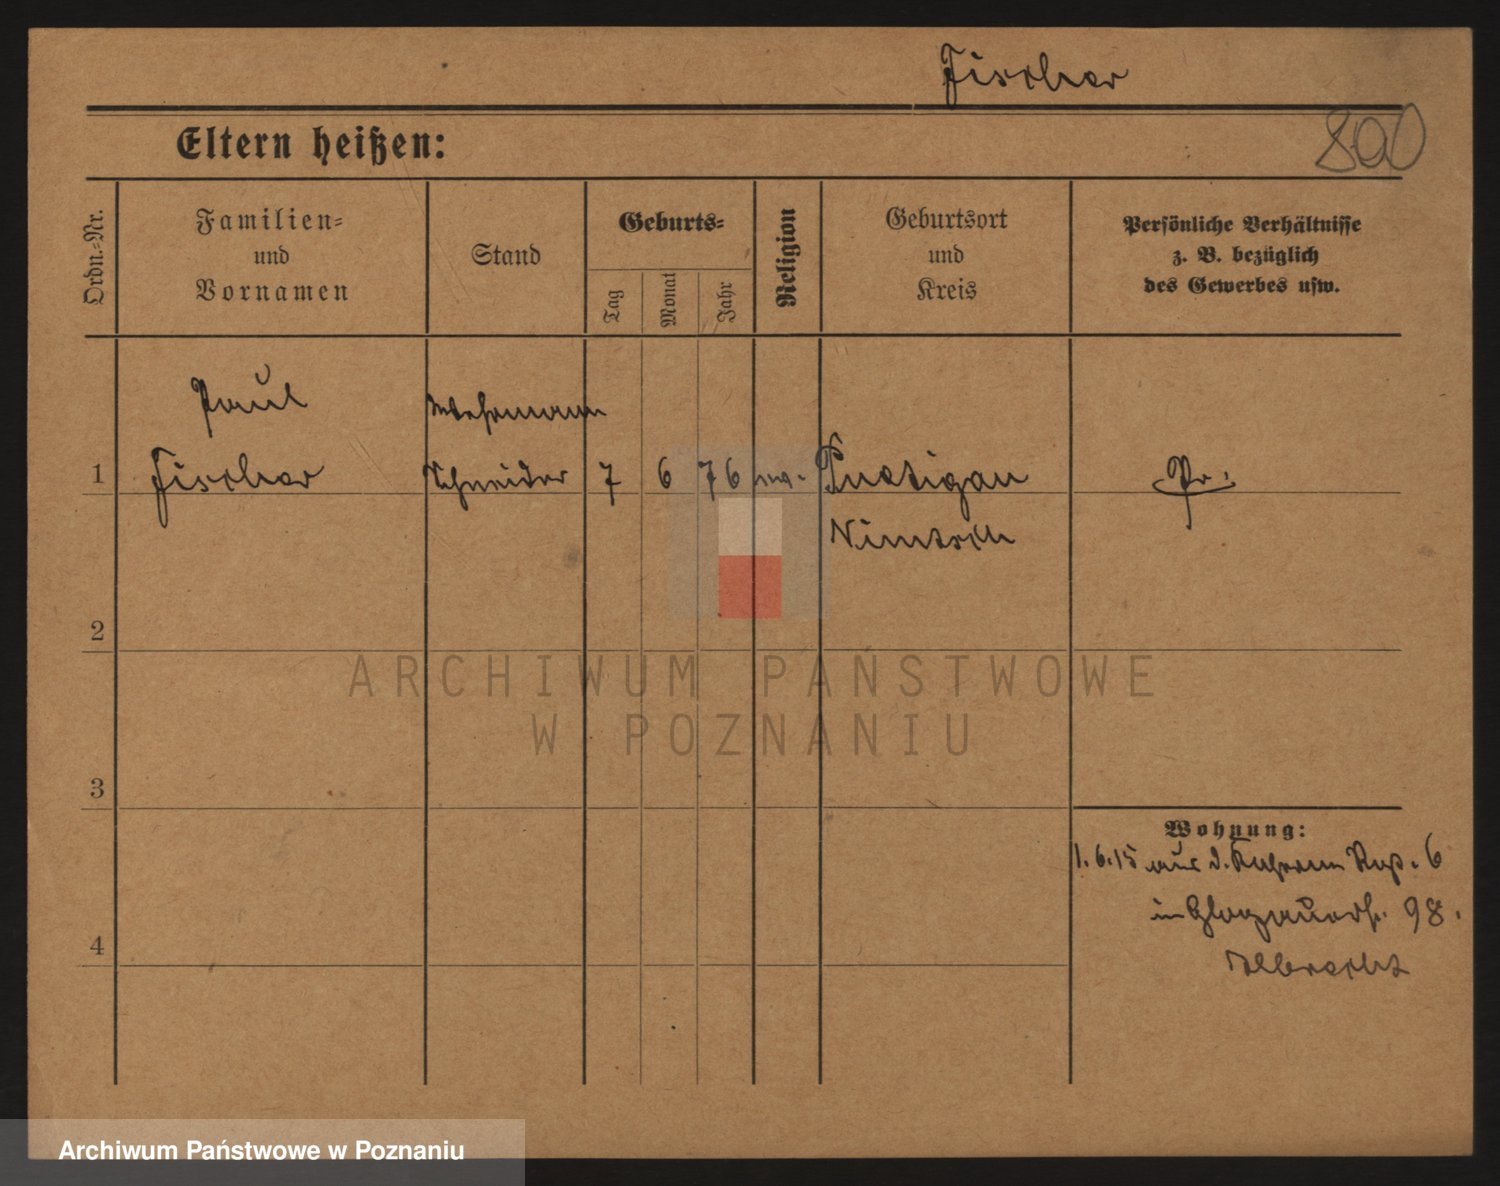 Fischer
800
Eltern heißen:
Ordn.-Nr.
Familien-
und
Vornamen
Stand
Geburts-
Tag
Monat
Jahr
Religion
Geburtsort
und
Kreis
Persönliche Verhältnisse
z. B. bezüglich
des Gewerbes usw.
Paul
Wehrmann
1 Fischer Schneider 7 6 76 Pr.
Nimtsch
2
ARCHIWUM PAŃSTWOWE
W POZNANIU
3
Wohnung:
1.6.15 aus d. 6
in Glogauerstr. 98.
4
Albrecht
Archiwum Państwowe w Poznaniu